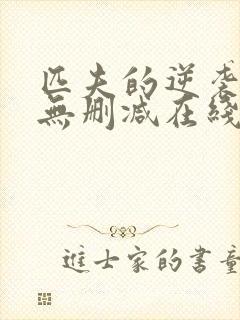 匹夫的逆袭
無删减在綫
進士家的書童